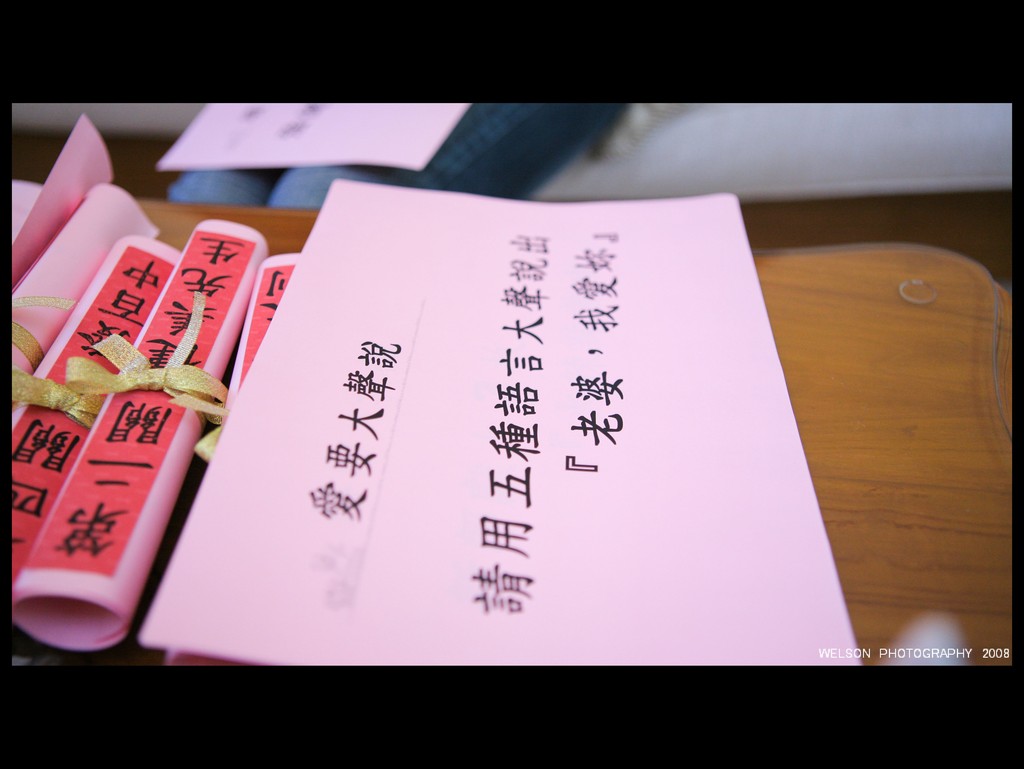 愛要大聲說
請用五種語言大聲說出
『老婆，我愛妳』
第二關
四關
先生
WELSON PHOTOGRAPHY 2008